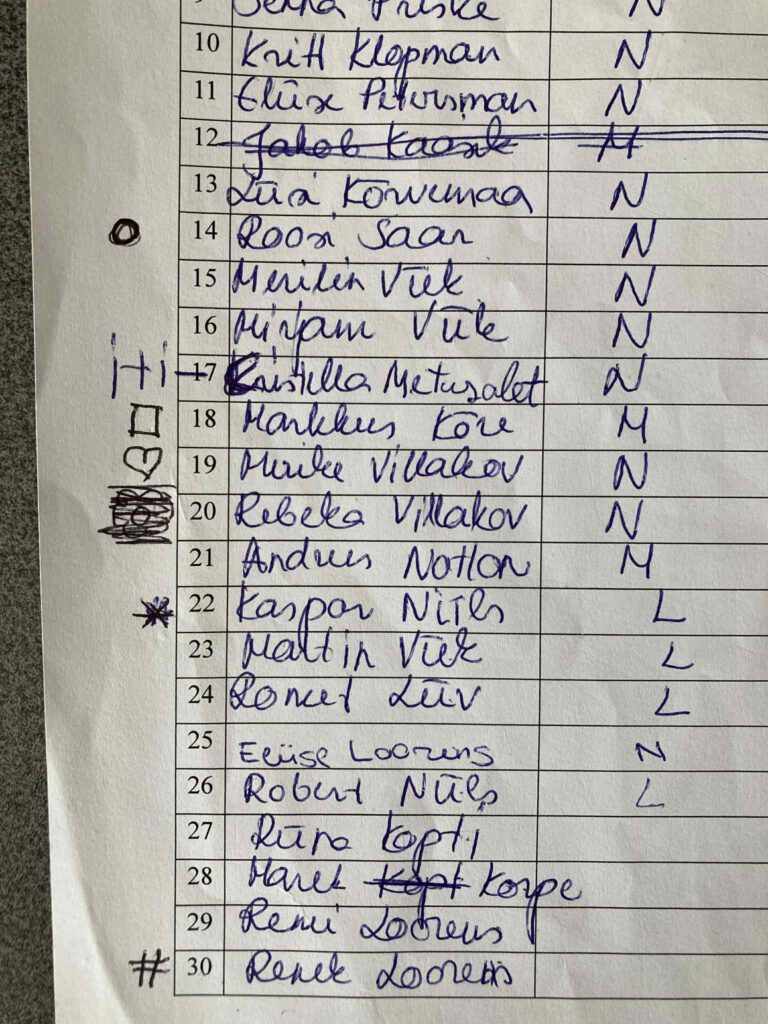 Priske N
10 Kritt Klopman N
11 Eliise Petersman N
12 Jakob Kaasik M
13 Liisi Kõrvemaa N
14 Roosi Saar N
15 Merilin Viik N
16 Mirjam Viik N
17 Kristella Metusalet N
18 Markkus Kõre M
19 Merike Villakov N
20 Rebeka Villakov N
21 Andres Notton M
22 Kaspar Niils L
23 Mattin Viik L
24 Romet Liiv L
25 Eliise Loorens N
26 Robert Niils L
27 Kopti
28 Marek Kopt Korpe
29 Remi Loorens
# 30 Renek Loorens